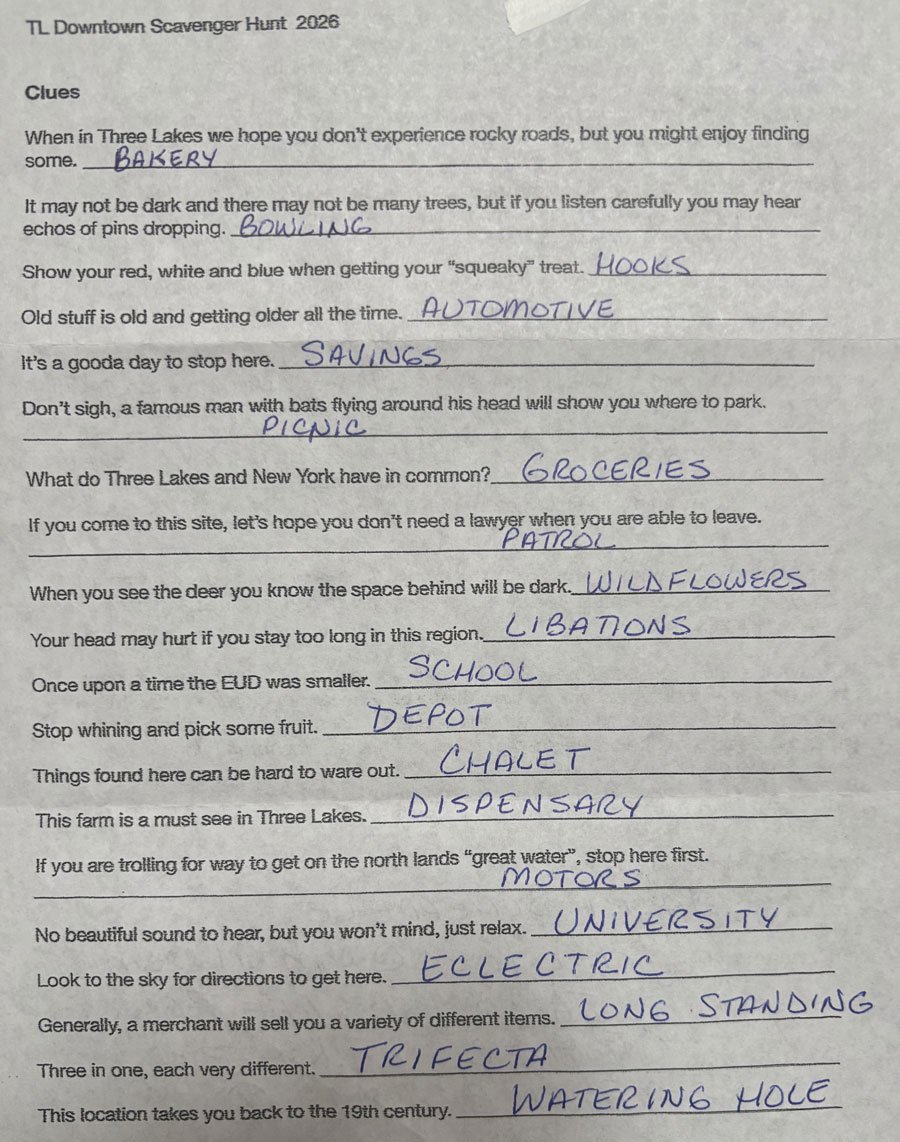 TL Downtown Scavenger Hunt 2026
Clues
When in Three Lakes we hope you don't experience rocky roads, but you might enjoy finding
some. BAKERY
It may not be dark and there may not be many trees, but if you listen carefully you may hear
echos of pins dropping. BOWLING
Show your red, white and blue when getting your "squeaky" treat. HOOKS
Old stuff is old and getting older all the time. AUTOMOTIVE
It's a gooda day to stop here. SAVINGS
Don't sigh, a famous man with bats flying around his head will show you where to park.
PICNIC
What do Three Lakes and New York have in common? GROCERIES
If you come to this site, let's hope you don't need a lawyer when you are able to leave.
PATROL
When you see the deer you know the space behind will be dark. WILDFLOWERS
Your head may hurt if you stay too long in this region. LIBATIONS
Once upon a time the EUD was smaller. SCHOOL
Stop whining and pick some fruit. DEPOT
Things found here can be hard to ware out. CHALET
This farm is a must see in Three Lakes. DISPENSARY
If you are trolling for way to get on the north lands "great water", stop here first.
MOTORS
No beautiful sound to hear, but you won't mind, just relax. UNIVERSITY
Look to the sky for directions to get here. ECLECTRIC
Generally, a merchant will sell you a variety of different items. LONG STANDING
Three in one, each very different. TRIFECTA
This location takes you back to the 19th century. WATERING HOLE